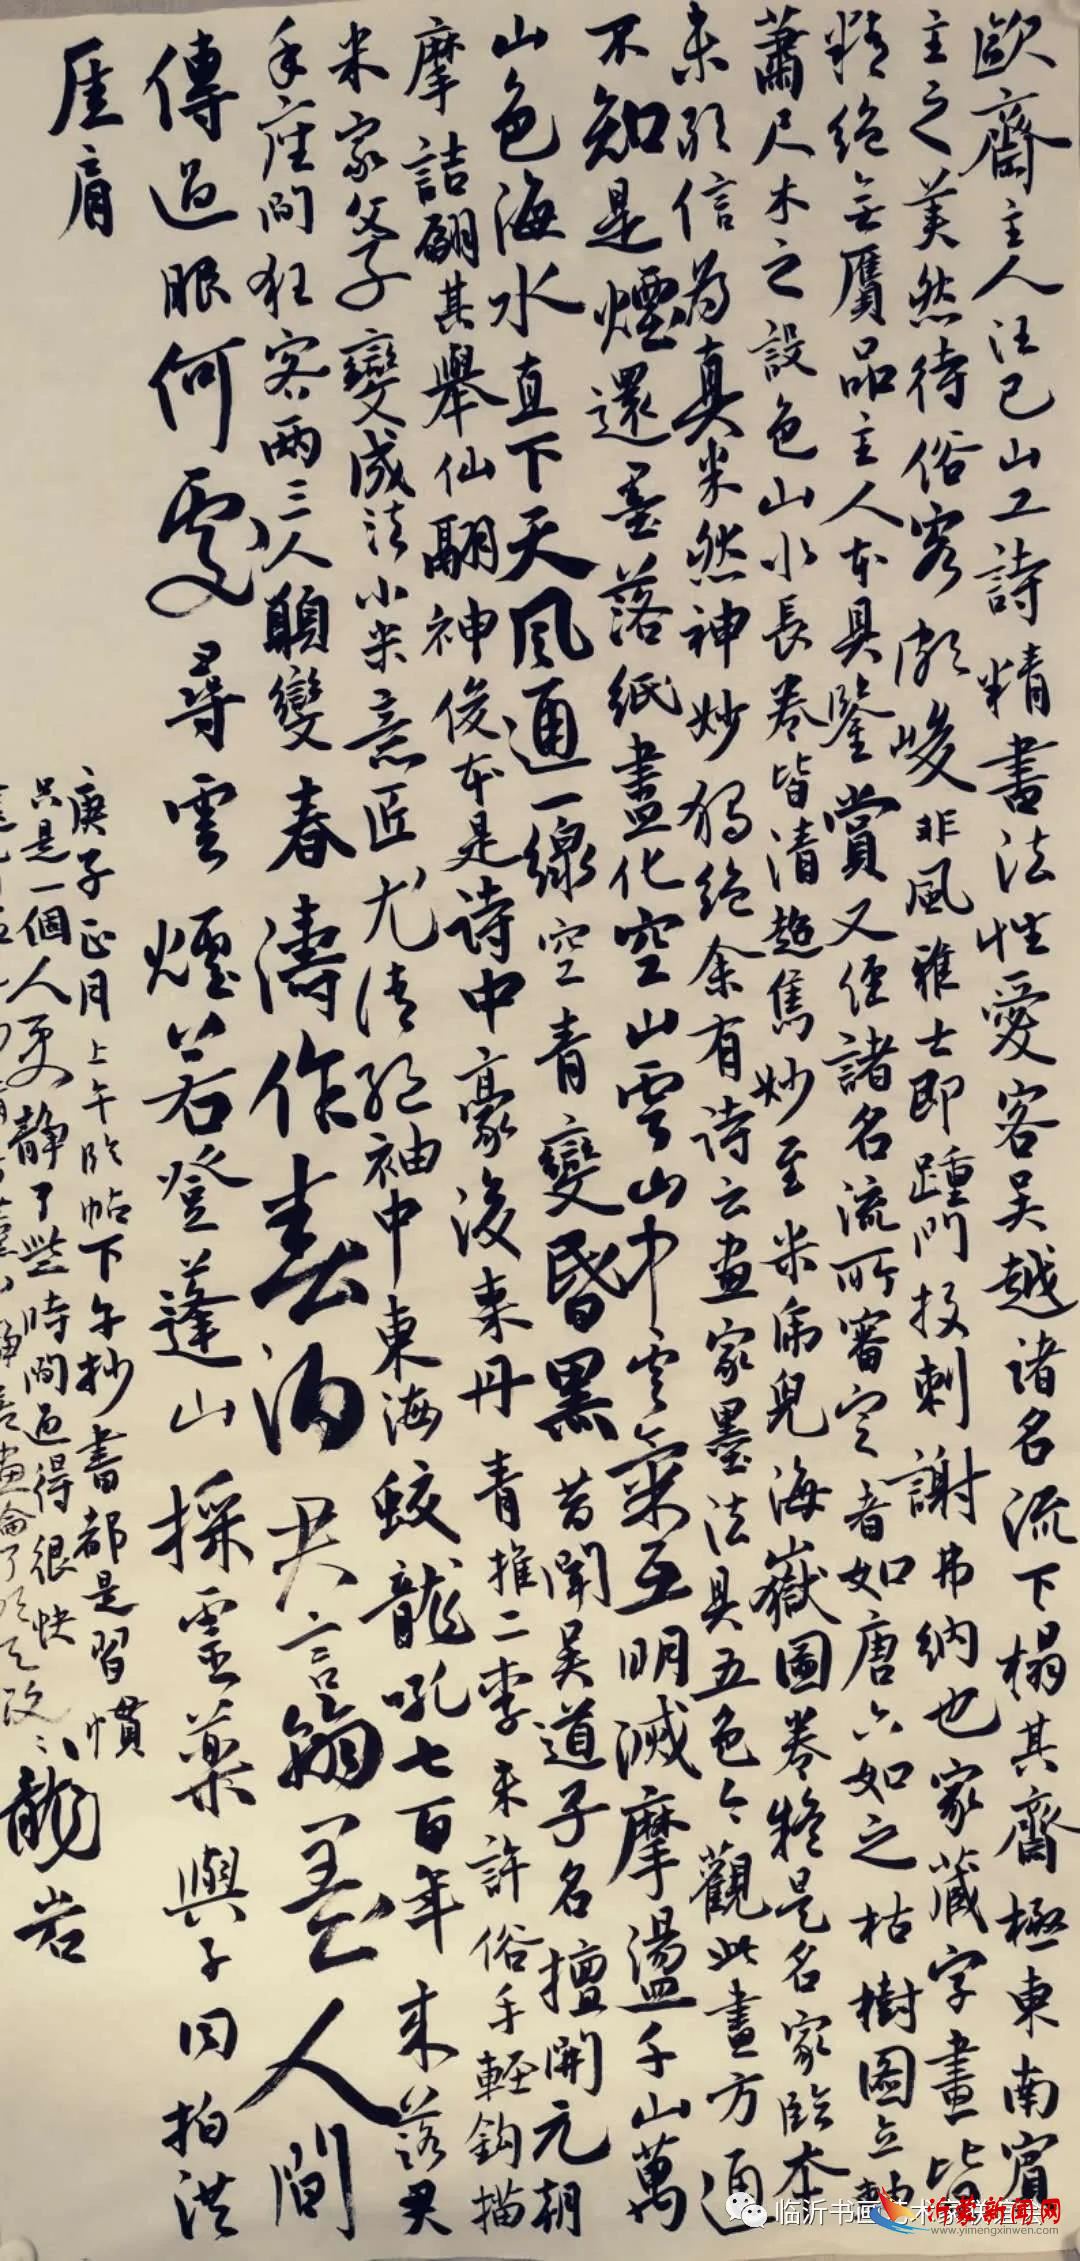 歐齋主人汪已山工詩精書法性愛客吳越諸名流下榻其齋極東南賓
主之美然待俗客頗峻非風雅士即踵門投刺謝弗納也家藏字畫皆
精絕無贋品主人本具鑒賞又經諸名流所審定者如唐六如之枯樹圖立軸
蕭尺木之設色山水長卷皆清超雋妙至米虎兒海嶽圖卷終是名家臨本
未敢信為真米然神妙獨絕余有詩云畫家墨法具五色今觀此畫方通
不知是煙還墨落紙盡化空山雲山中雲氣互明滅摩盪千山萬
山色海水直下天風通一線空青變昏黑昔聞吳道子名擅開元朝
摩詰翩其舉仙翮神俊本是詩中豪後來丹青推二李未許俗手輕鈎描
米家父子變成法小米意匠尤清絕袖中東海蛟龍吼七百年來落君
手座間狂客兩三人願變春濤作春酒君言翰墨人間
傳過眼何處尋雲煙若登蓬山採靈藥與子同拍洪
厓肩
庚子正月上午臨帖下午抄書都是習慣
只是一個人更靜了些時間過得很快
龍岩
臨沂书画艺术家
沂蒙新闻网
www.yimengxinwen.com